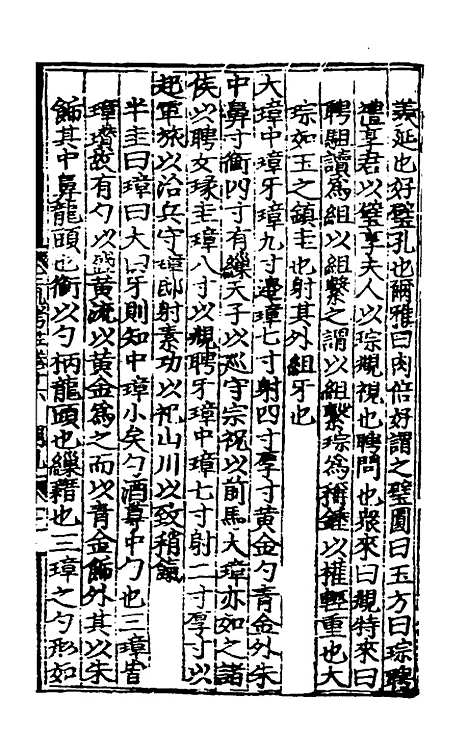 羨延也好璧孔也爾雅曰肉倍好謂之璧圓曰玉方曰琮聘
禮享君以璧享夫人以琮覜視也聘問也眾來曰覜特來曰
聘駔讀為組以組繫之謂以組繫琮為稱錘以權輕重也大
琮如王之鎮圭也射其外組牙也
大璋中璋牙璋九寸邊璋七寸射四寸厚寸黃金勺青金外朱
中鼻寸衡四寸有繅天子以巡守宗祝以前馬大璋亦如之諸
侯以聘女瑑圭璋八寸以覜聘牙璋中璋七寸射二寸厚寸以
起軍旅以治兵守璋邸射素功以祀山川以致稍餼
半圭曰璋曰大曰牙則知中璋小矣勺酒尊中勺也三璋皆
璋瓚故有勺以盛黃流以黃金為之而以青金飾外其以朱
飾其中鼻龍頭也衡以勺柄龍頭也繅藉也三璋之勺形如